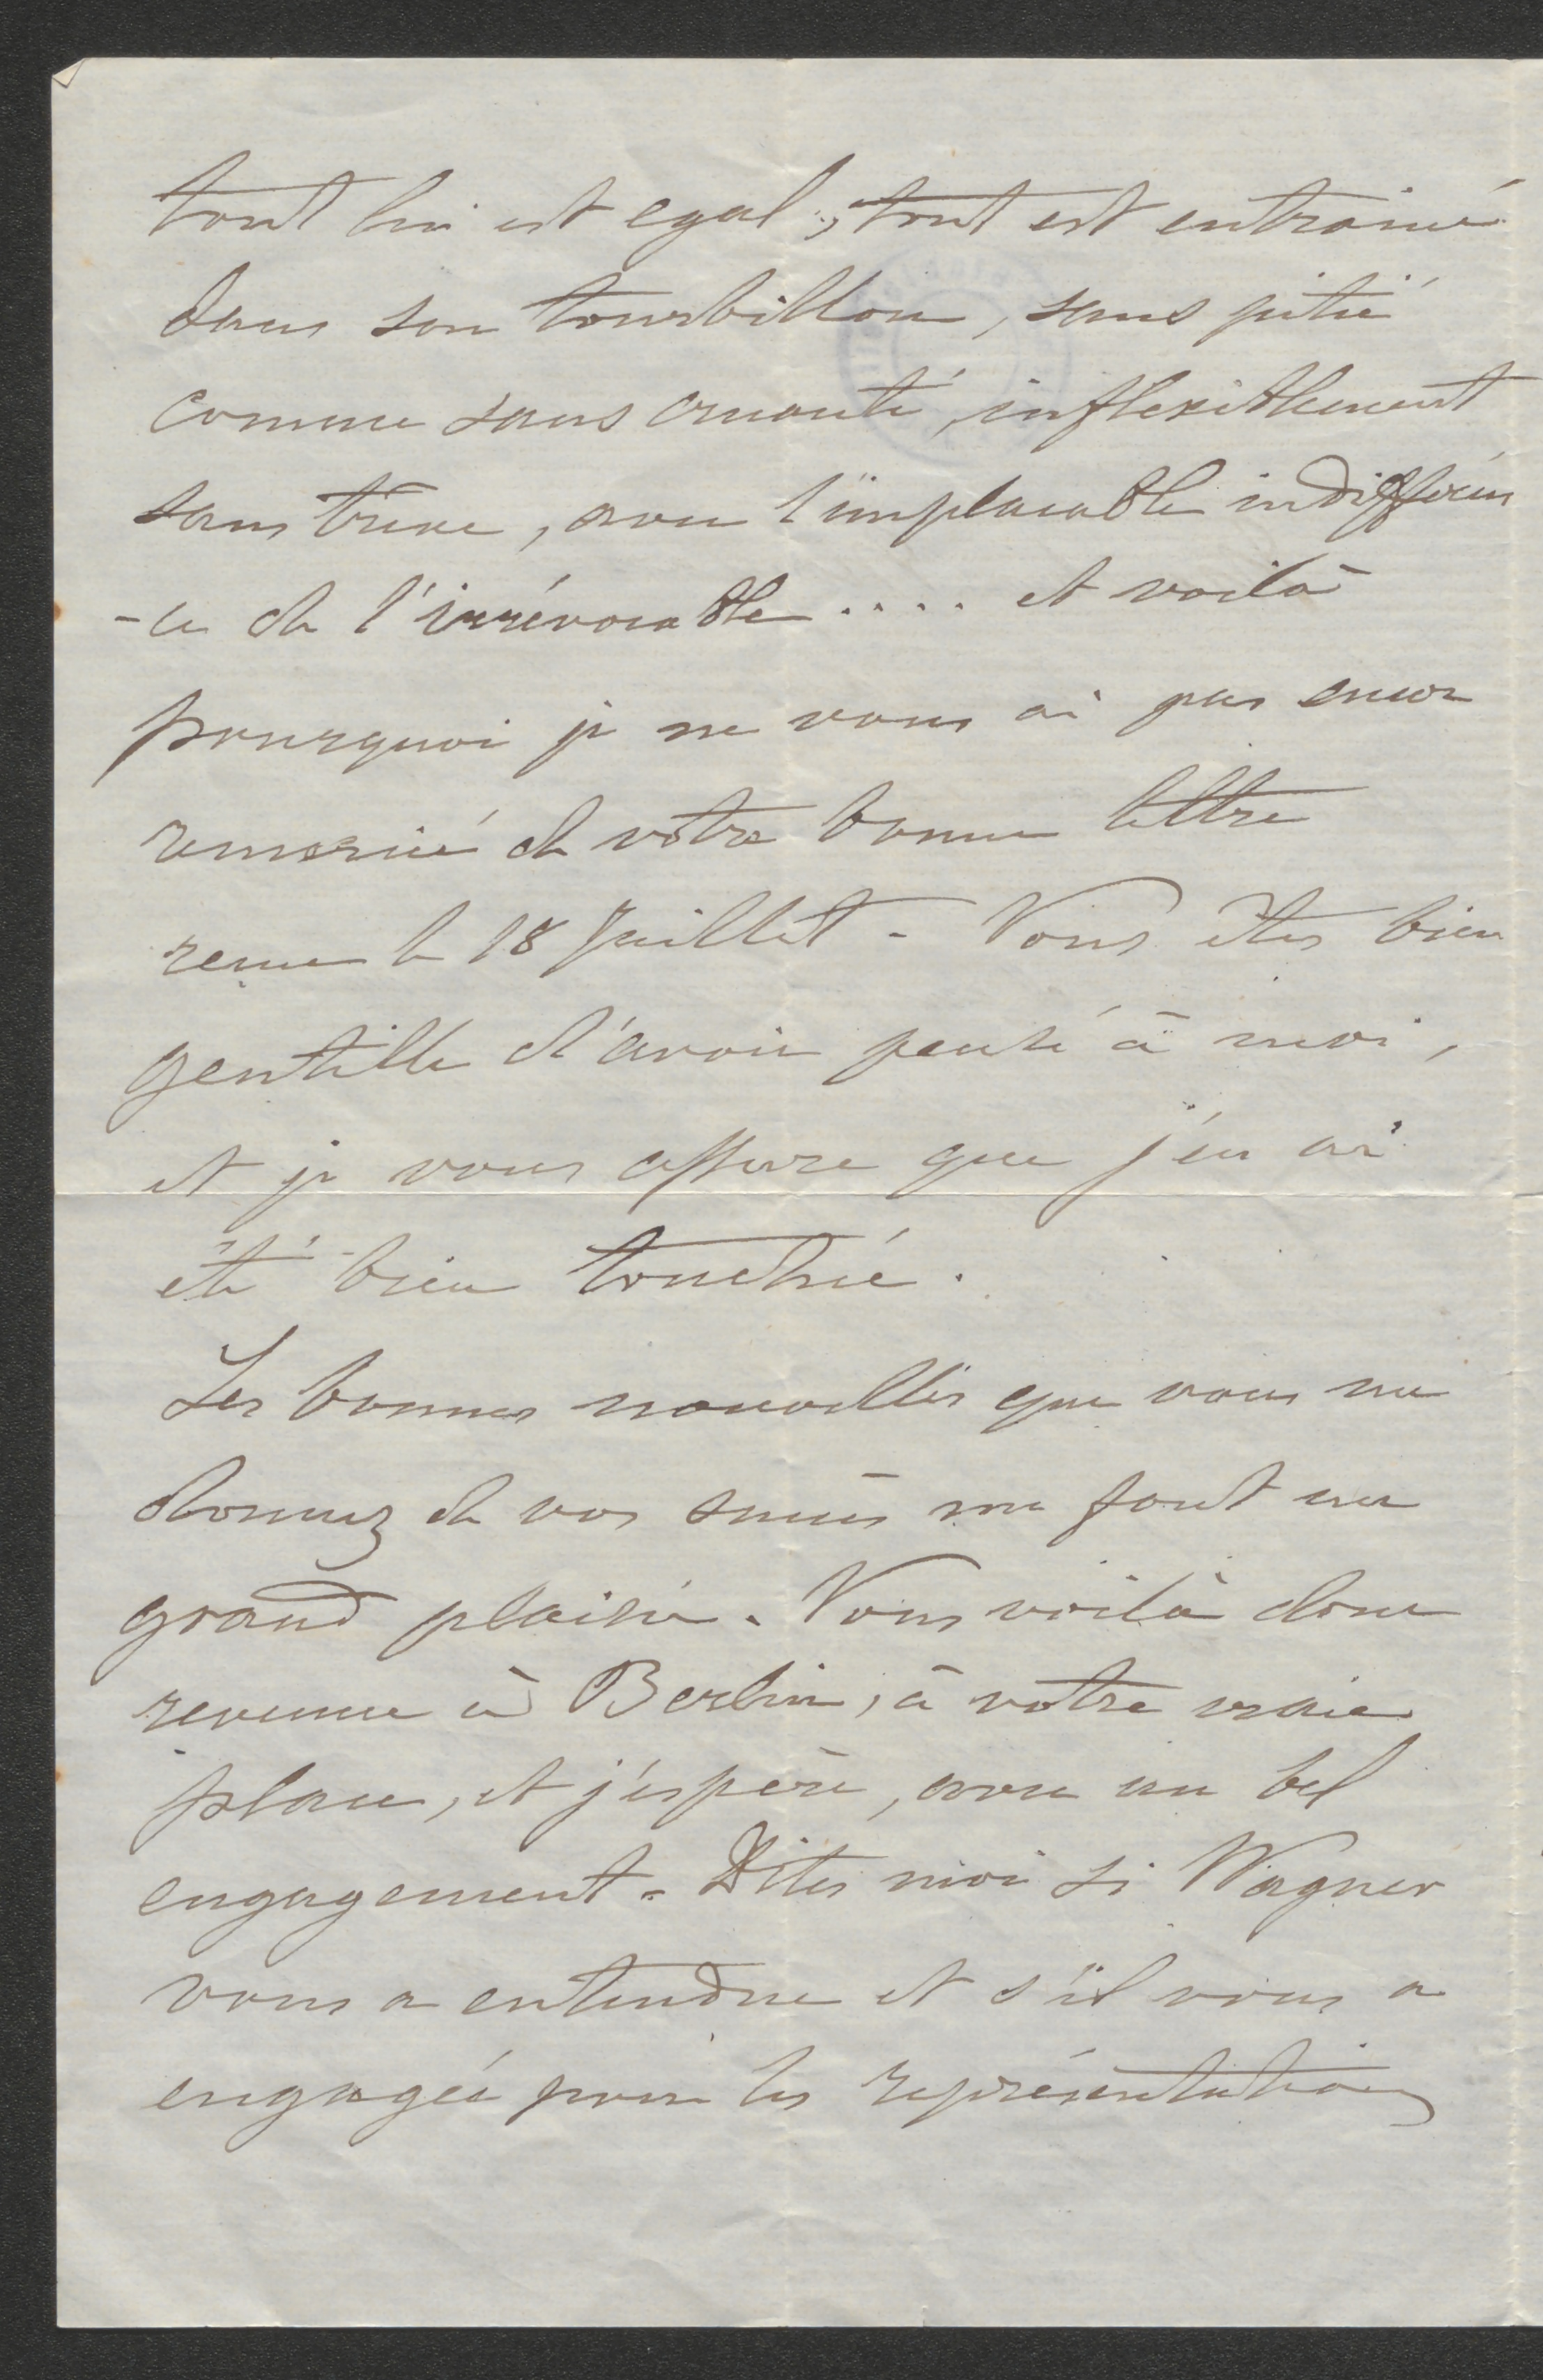 tout lui est egal, tout est entrainé
dans son tourbillon, sans pitié
comme sans cruauté, inflexiblement
sans trève, avec l'implacable indifféren
-ce de l'irrévocable .... et voilà
pourquoi je ne vous ai pas encor
remercié de votre bonne lettre
reçue le 18 Juillet - Vous êtes bien
gentille d'avoir pensé à moi,
et je vous assure que j'en ai
été bien touché.
Les bonnes nouvelles que vous me
donnez de vos succès me font un
grand plaisir. Vous voilà donc
revenue à Berlin, à votre vraie
place, et j'espère, avec un bel
engagement - Dites moi si Wagner
vous a entendue et s'il vous a
engagée pour les représentations